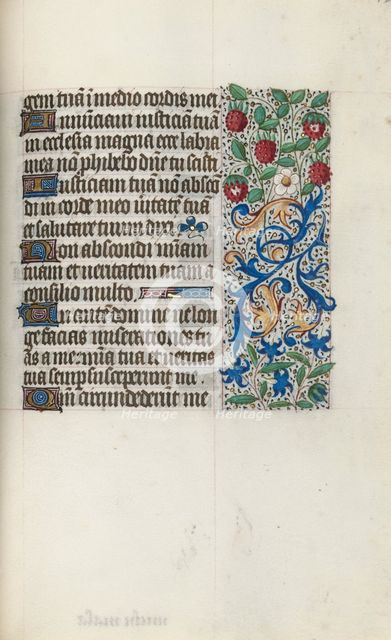 gem tuā ī medio cordis mei
Annūciaui iusticiam tuā
in ecclesia magna ecce labia
mea nō phibebo dn̄e tu scisti
Iusticiam tuā nō absco
di in corde meo ūitatē tuā
et salutare tuum dixi
Non abscondi mīam
tuam et ueritatem tuam a
consilio multo
Tu autē domine ne lon
ge facias miserationes tu
as a me mīa tua et ueritas
tua semp susceperunt me
Qm̄ circundederūt me
heritage
heritage